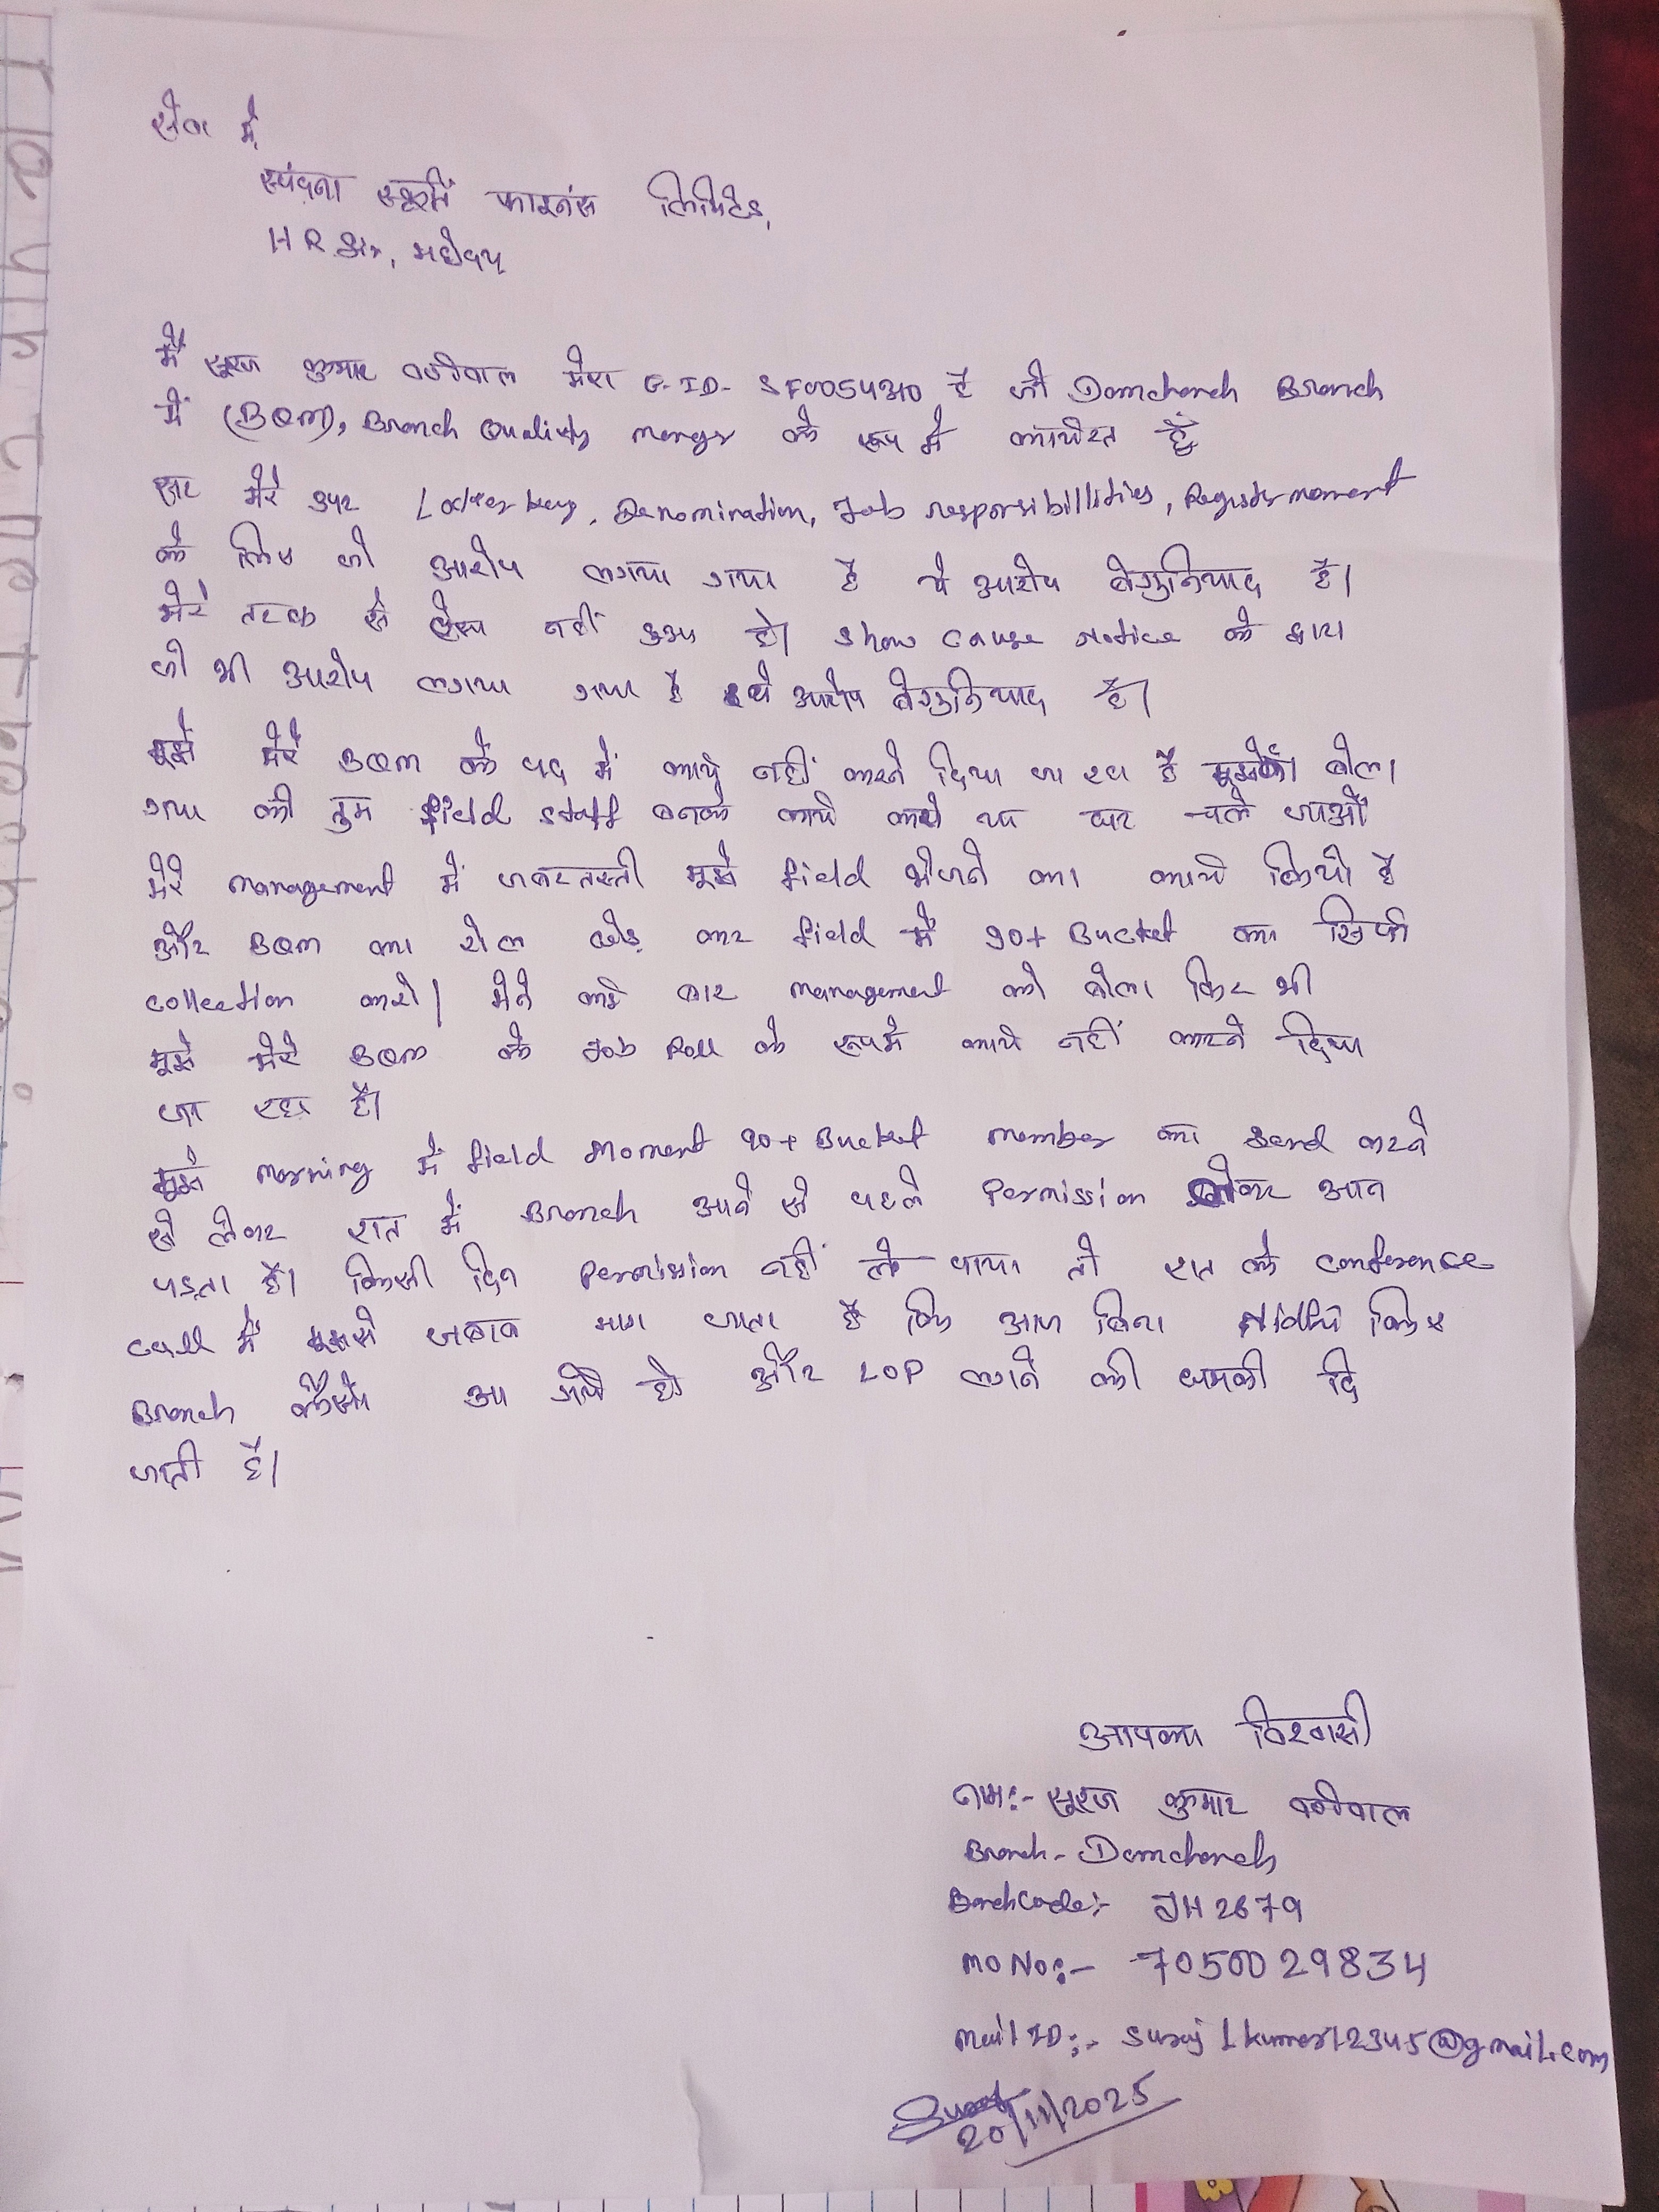 सेवा में,
स्पंदना स्फूर्ति फाइनेंस लिमिटेड,
HR सर, महोदय
मैं सूरज कुमार वर्णवाल मेरा E-ID- SF0054310 है जो Domchanch Branch
में (BQM), Branch Quality manger के रूप में कार्यरत हूँ
सर मेरे उपर Locker key, Denomination, Job responsibillities, Register moment
के लिए जो आरोप लगाया गया है ये आरोप बेबुनियाद है।
मेरे तरफ से ऐसा नहीं हुआ है। Show cause Notice के द्वारा
जो भी आरोप लगाया गया है ये आरोप बेबुनियाद है।
मुझे मेरे BQM के पद में कार्य नहीं करने दिया जा रहा है मुझको बोला
गया की तुम field staff बनके कार्य करो या घर चले जाओं
मेरे management में जबरतस्ती मुझे field भेजने का कार्य किये है
और BQM का रोल छोड़ कर field में 90+ Bucket का सिर्फ
collection करो। मेने कई बार management को बोला फिर भी
मुझे मेरे BQM के Job Roll के रूप में कार्य नहीं करने दिया
जा रहा है।
मुझे morning में field Moment 90+ Bucket member का send करने
से लेकर रात में Branch आने से पहले Permission लेकर आना
पड़ता है। किसी दिन Permission नहीं ले पाया तो रात के conference
call में मुझसे जबाब मागा जाता है कि आज बिना किए
Branch कैसे आ गये हो और LOP लगाने की धमकी दि
जाती है।
आपका विश्वासी
नाम:- सूरज कुमार वर्णवाल
Branch- Domchanch
BranchCode:- JH2679
MO No:- 7050029834
Mail ID:- surajlkumar12345@gmail.com
Suraj
20/11/2025